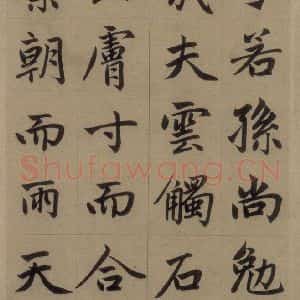 若孫尚勉
夫雲觸石
膚寸而合
朝而雨天
Shufawang.CN